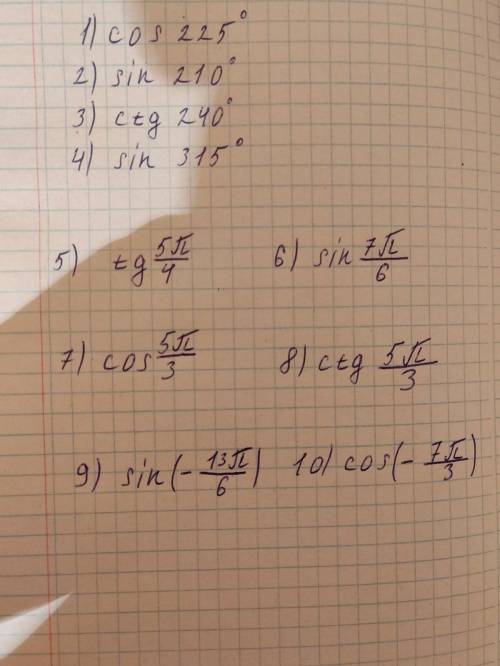 1) cos 225°
2) sin 210°
3) ctg 240°
4) sin 315°
5) tg 5π/4 6) sin 7π/6
7) cos 5π/3 8) ctg 5π/3
9) sin(-13π/6) 10) cos(-7π/3)